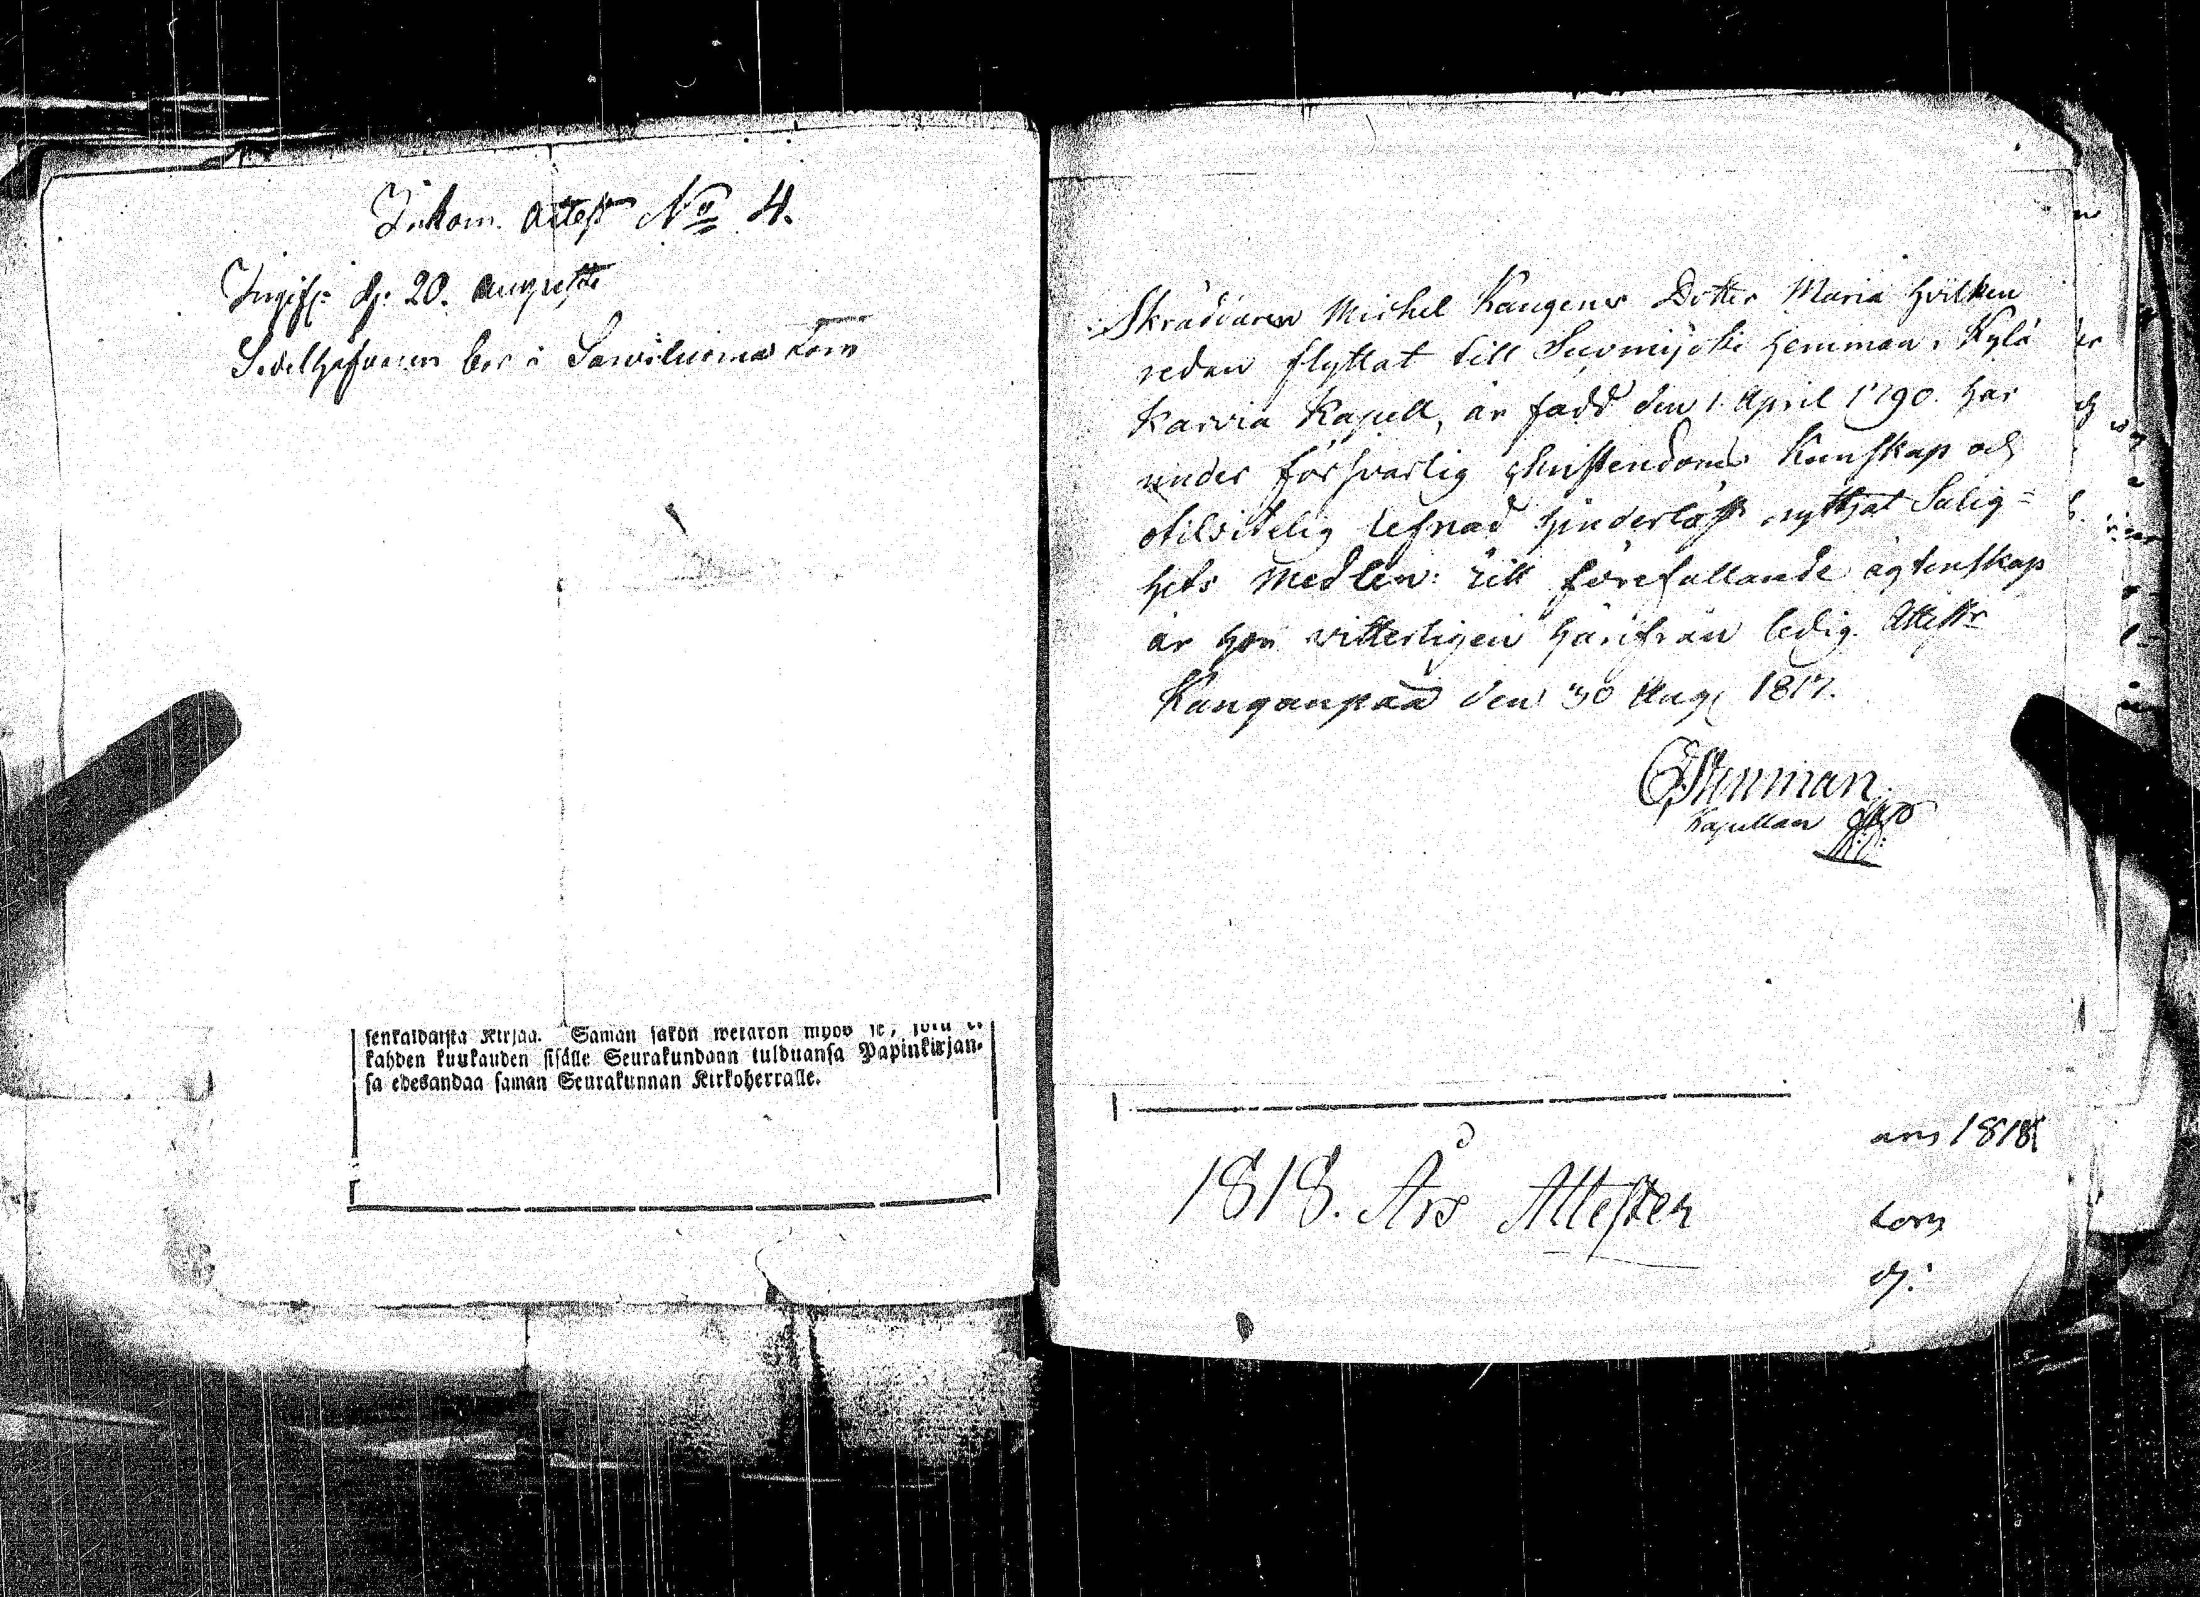 Inkom. Attest No 4.
Ingift d: 20. Augusti
Sedelhafvaren bor i Sarviluoma torp
senkaldaista Kirjaa. Saman sakon wetäkön myös se,
kahden kuukauden sisälle Seurakundaan tulduansa Papinkirjan-
sa edesandaa saman Seurakunnan Kirkoherralle.
Skräddaren Michel Kangens Dotter Maria hvilken
redan flyttat till Suomijoki hemman, Kylä
Karvia Kapell, är född den 1 April 1790. har
under försvarlig Christendoms Kunskap och
otilvitelig lefnad hinderlöst nyttjat Salig=
hets Medlen: till förefallande ägtenskap
är hon vitterligen härifrån ledig. Attestr
Kanganpää den 30 Aug 1817.
Stenman
Kapellan
1818. Års Attester
1818
torp